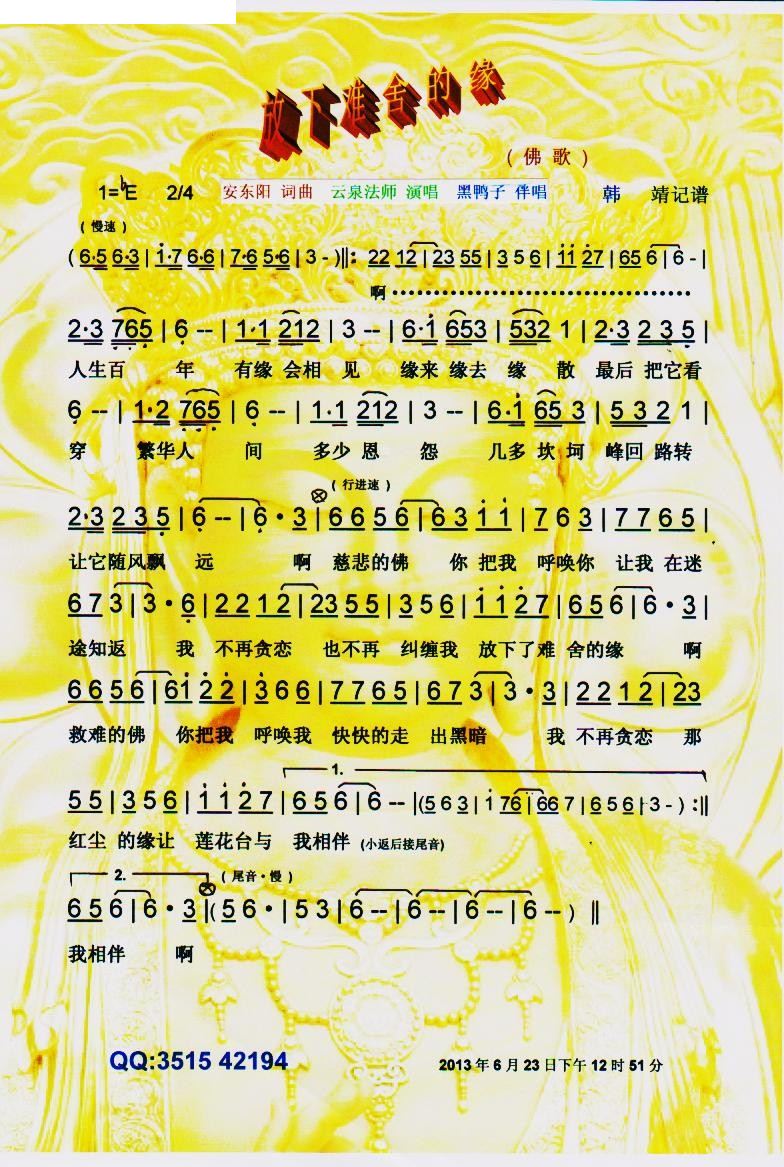 放下难舍的缘
(佛歌)
1=bE 2/4 安东阳 词曲 云泉法师 演唱 黑鸭子 伴唱 韩 靖记谱
(慢速)
(6·5 6·3 | 1·7 6·6 | 7·6 5·6 | 3 - )‖: 22 12 | 23 55 | 3 5 6 | 11 27 | 65 6 | 6 - |
啊
2·3 765 | 6 -- | 1·1 212 | 3 -- | 6·1 653 | 532 1 | 2·3 2 3 5 |
人生百 年 有缘 会相 见 缘来 缘去 缘 散 最后 把它看
6 -- | 1·2 765 | 6 -- | 1·1 212 | 3 -- | 6·1 65 3 | 5 3 2 1 |
穿 繁华人 间 多少 恩 怨 几多 坎 坷 峰回 路转
(行进速)
2·3 2 3 5 | 6 -- | 6 · 3 | 6 6 5 6 | 6 3 1 1 | 7 6 3 | 7 7 6 5 |
让它随风飘 远 啊 慈悲的佛 你 把我 呼唤你 让我 在迷
6 7 3 | 3 · 6 | 2 2 1 2 | 23 5 5 | 3 5 6 | 1 1 2 7 | 6 5 6 | 6 · 3 |
途知返 我 不再贪恋 也不再 纠缠我 放下了难 舍的缘 啊
6 6 5 6 | 61 2 2 | 3 6 6 | 7 7 6 5 | 6 7 3 | 3 · 3 | 2 2 1 2 | 23
救难的佛 你把我 呼唤我 快快的走 出黑暗 我 不再贪恋 那
1.
5 5 | 3 5 6 | 1 1 2 7 | 6 5 6 | 6 -- |(5 6 3 | 1 76 | 66 7 | 6 5 6 | 3 - ) :‖
红尘 的缘让 莲花台与 我相伴 (小返后接尾音)
2. (尾音·慢)
6 5 6 | 6 · 3 |(5 6 · | 5 3 | 6 -- | 6 -- | 6 -- | 6 -- ) ‖
我相伴 啊
QQ:3515 42194 2013年6月23日下午12时51分